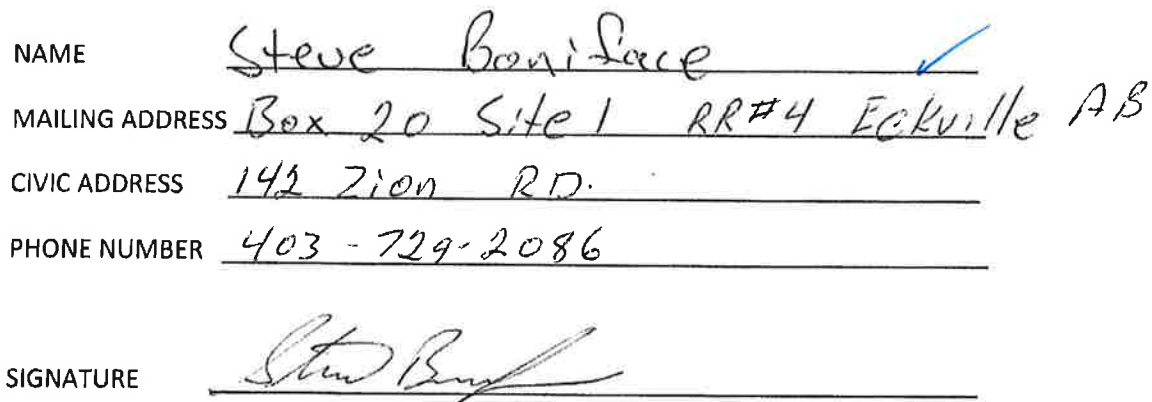 NAME Steve Boniface
MAILING ADDRESS Box 20 Site 1 RR#4 Eckville AB
CIVIC ADDRESS 142 Zion RD.
PHONE NUMBER 403-729-2086
SIGNATURE